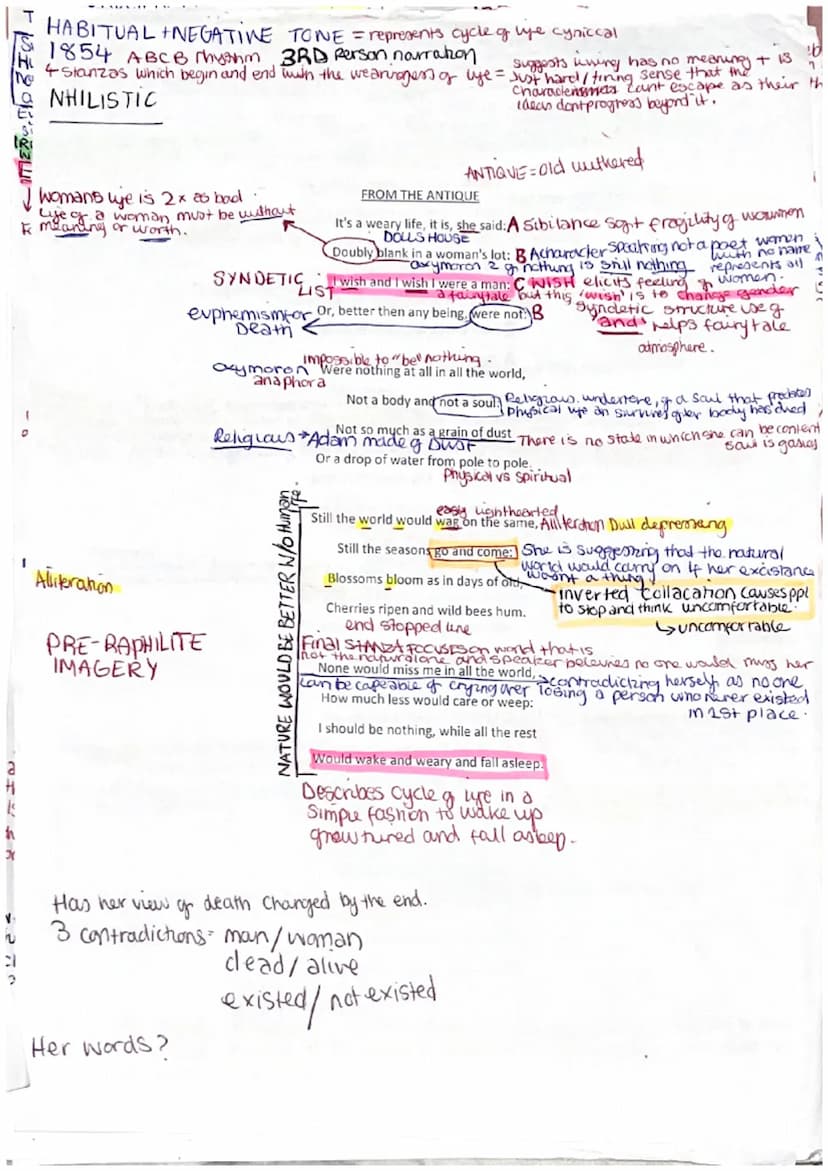 HABITUAL + NEGATIVE TONE = represents cycle of life cyniccal
1854 ABCB rhythm 3RD Person narration
4 stanzas which begin and end with the weariness of life = suggests living has no meaning + is
just hard/tiring sense that the
characters cant escape as their
ideas dont progress beyond it.
NHILISTIC
ANTIQUE = old withered
Womans life is 2x as bad.
Life of a woman must be without
meaning or worth.
FROM THE ANTIQUE
It's a weary life, it is, she said: A sibilance soft fragility of women
DOLLS HOUSE
Doubly blank in a woman's lot: B A character speaking not a poet women
with no name
represents all
women.
oxymoron 2 of nothing is still nothing
SYNDETIC
LIST
I wish and I wish I were a man: C WISH elicits feeling of
a fairytale but this 'wish' is to change gender
Or, better then any being, were not: B
euphemism for
Death
syndetic structure use of
"and" helps fairytale
atmosphere.
impossible to "be" nothing.
oxymoron Were nothing at all in all the world,
anaphora
Not a body and not a soul: Religious undertone, of a soul that predates
physical life an survives after body has died
Not so much as a grain of dust
Religious → Adam made of DUST There is no state in which she can be content
Or a drop of water from pole to pole.
Physical vs spiritual
NATURE WOULD BE BETTER W/O Human life.
easily lighthearted
Still the world would wag on the same, Alliteration Dull depressing
Still the seasons go and come: She is suggesting that the natural
world would carry on if her existance
wasnt a thing
Alliteration
Blossoms bloom as in days of old,
inverted collacation causes ppl
to stop and think uncomfortable.
↳ uncomfortable
Cherries ripen and wild bees hum.
end stopped line
PRE-RAPHILITE
IMAGERY
Final STANZA FOCUSES on world that is
not the natural one and speaker believes no one would miss her
None would miss me in all the world, → contradicting herself as no one
can be capeable of crying over losing a person who never existed
in 1st place.
How much less would care or weep:
I should be nothing, while all the rest
Would wake and weary and fall asleep.
Describes cycle of life in a
simple fashion to wake up
grow tured and fall asleep.
Has her view of death changed by the end.
3 contradictions = man/woman
dead/alive
existed/not existed
Her words?